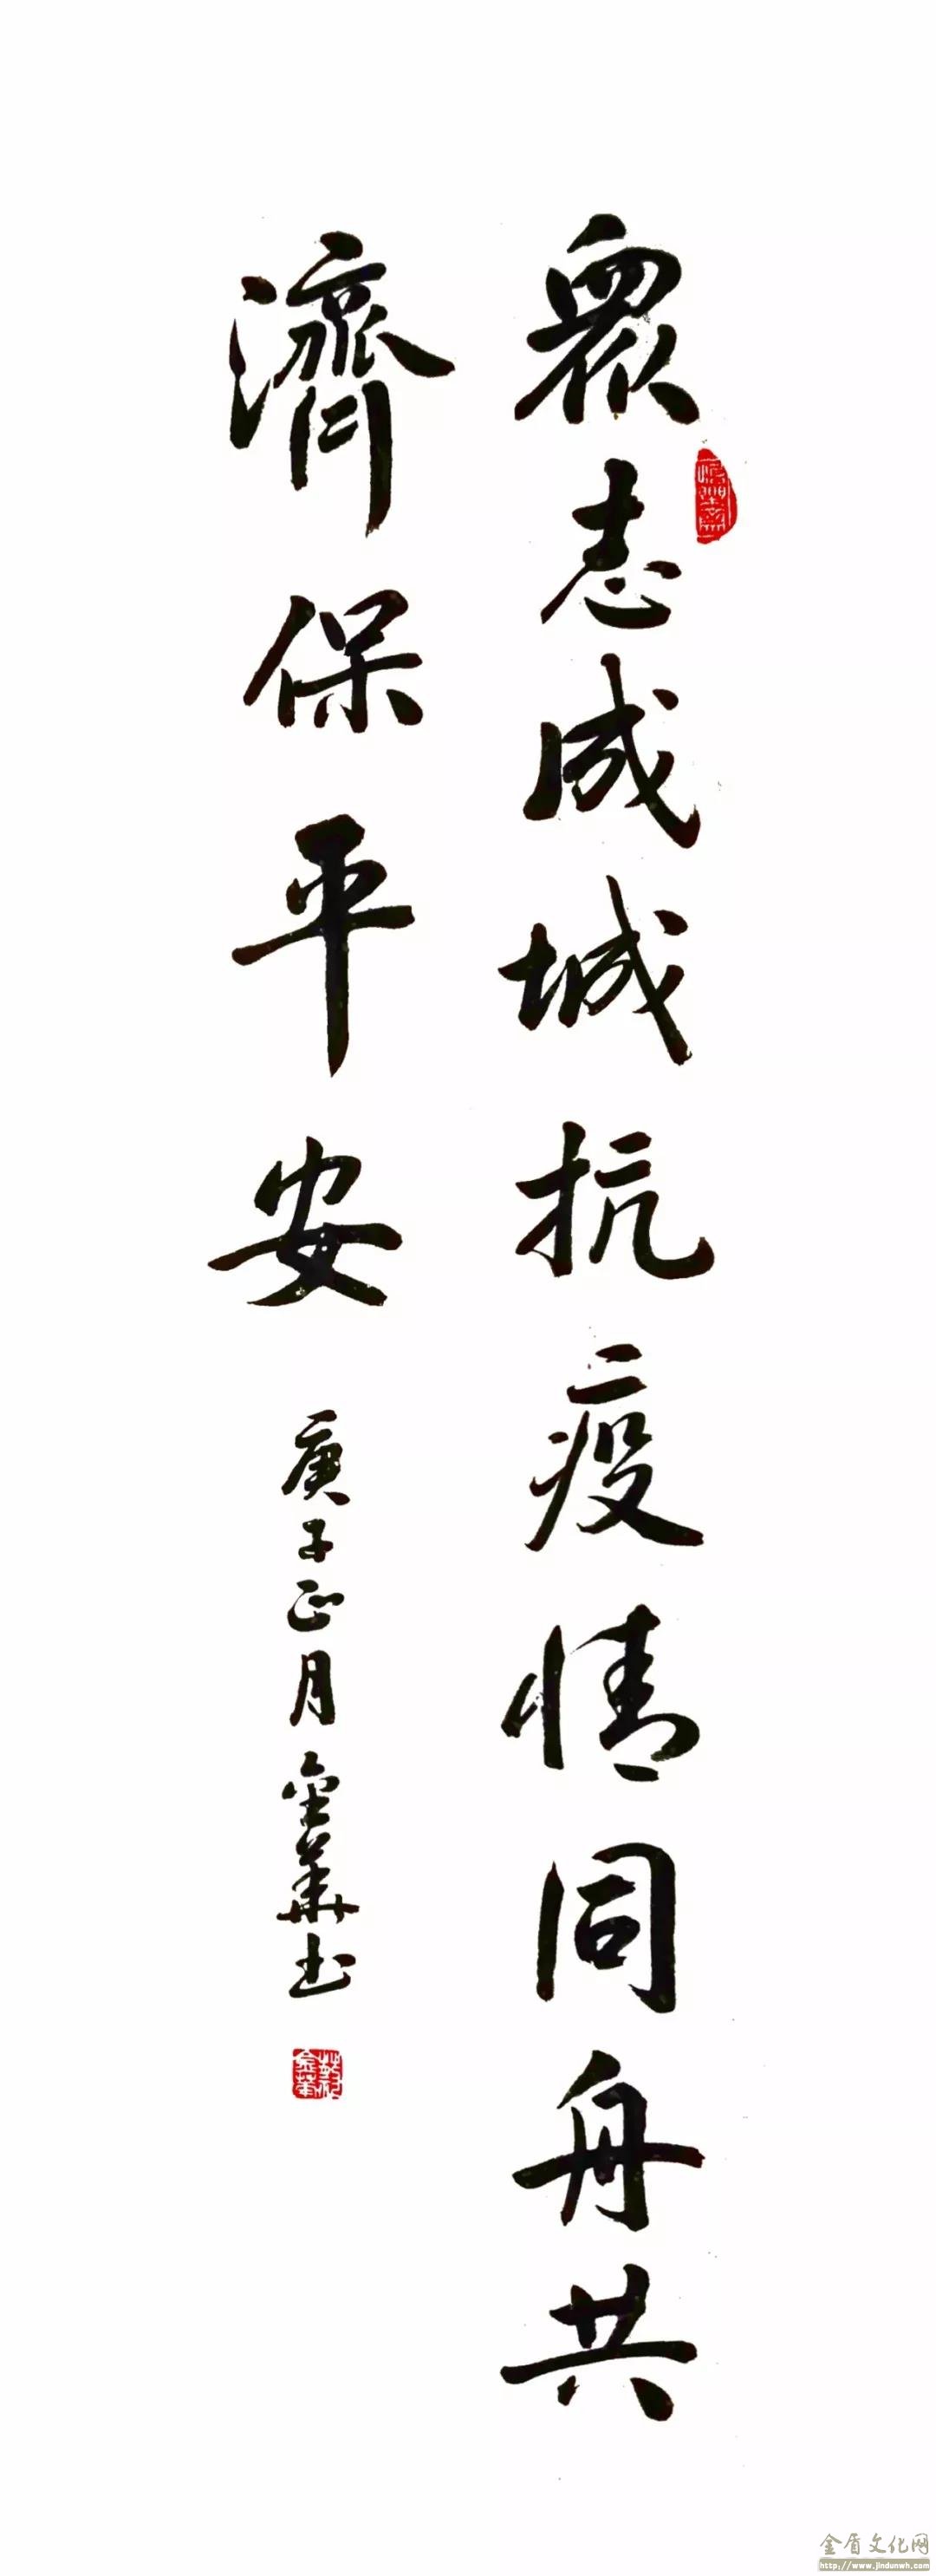 眾志成城抗疫情同舟共
濟保平安
庚子正月金華书
金盾文化网
http://www.jindunwh.com